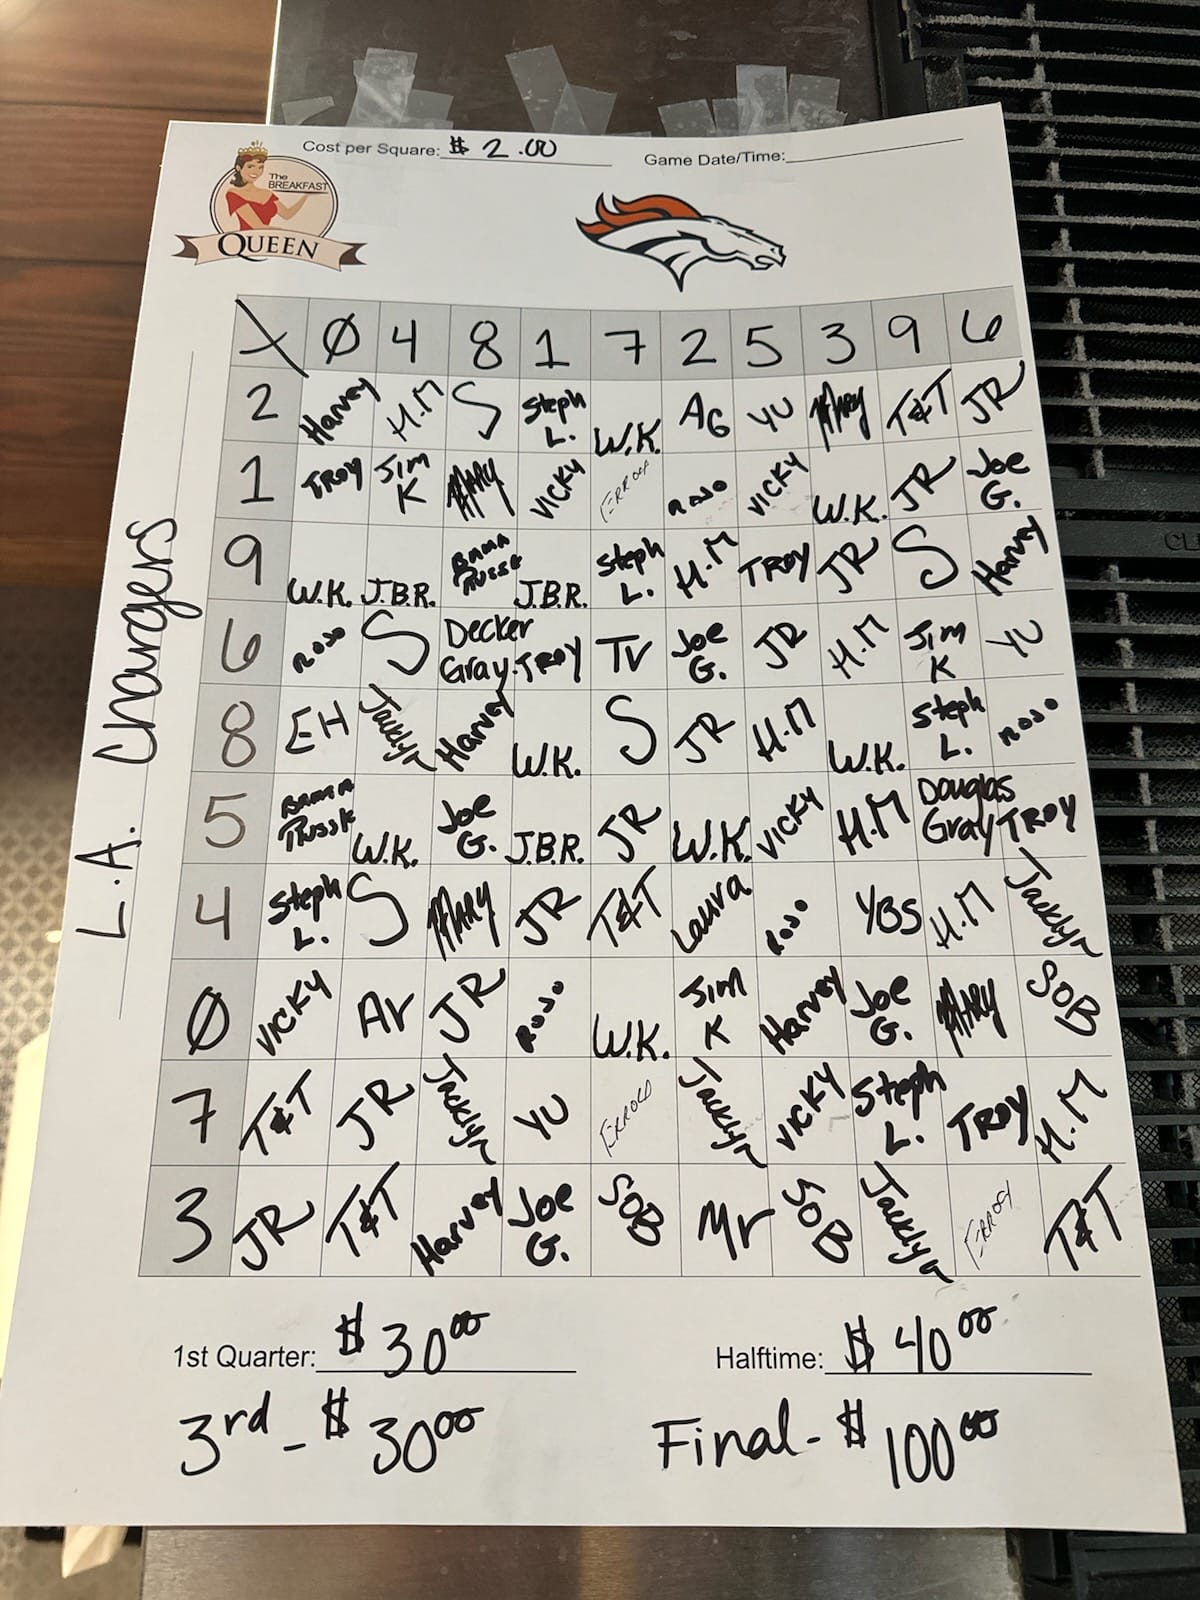 Cost per Square: $ 2.00 Game Date/Time:
The
BREAKFAST
QUEEN
L.A. Chargers
X Ø 4 8 1 7 2 5 3 9 6
2 Harvey H.M S Steph L. W.K. AG YU Mary T&T JR
1 TROY Jim K MARY VICKY ROJO VICKY W.K. JR Joe G.
9 W.K. J.B.R. J.B.R. Steph L. H.M TROY JR S Harvey
6 ROJO S Decker Gray TROY TV Joe G. JR H.M Jim K YU
8 EH Harvey W.K. S JR H.M W.K. Steph L. ROJO
5 W.K. Joe G. J.B.R. JR W.K. VICKY H.M Douglas Gray TROY
4 Steph L. S MARY JR T&T Laura ROJO YBS H.M
Ø VICKY JR ROJO W.K. Jim K Harvey Joe G. MARY SOB
7 T&T JR YU VICKY Steph L. TROY H.M
3 JR T&T Harvey Joe G. SOB SOB T&T
1st Quarter: $ 30.00 Halftime: $ 40.00
3rd - $ 30.00 Final - $ 100.00